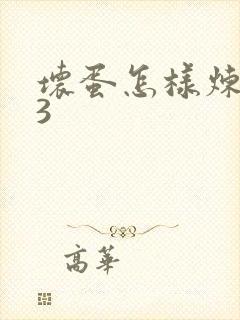 壞蛋怎樣煉
3
高華